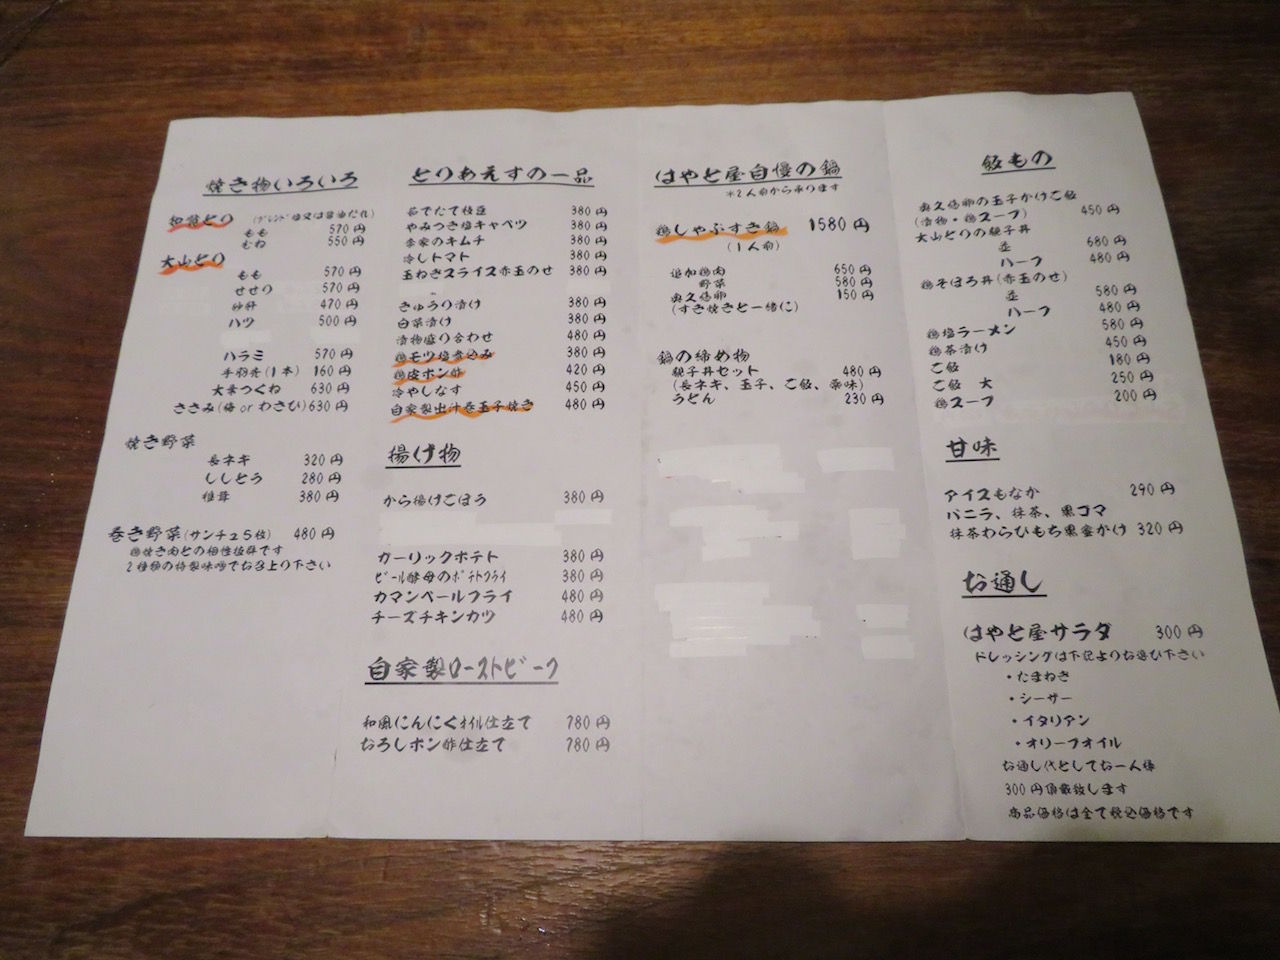 焼き物いろいろ
和翁とり (ブレンド塩又は醤油だれ)
もも 570円
むね 550円
大山とり
もも 570円
せせり 570円
砂肝 470円
ハツ 500円
ハラミ 570円
手羽先(1本) 160円
大葉つくね 630円
ささみ(梅 or わさび) 630円
焼き野菜
長ネギ 320円
ししとう 280円
椎茸 380円
巻き野菜(サンチュ5枚) 480円
鶏焼き肉との相性抜群です
2種類の特製味噌でお召上り下さい
とりあえずの一品
茹でたて枝豆 380円
やみつき塩キャベツ 380円
李家のキムチ 380円
冷しトマト 380円
玉ねぎスライス赤玉のせ 380円
きゅうり漬け 380円
白菜漬け 380円
漬物盛り合わせ 480円
鶏モツ塩煮込み 380円
鶏皮ポン酢 420円
冷やしなす 450円
自家製出汁巻玉子焼き 480円
揚げ物
から揚げごぼう 380円
ガーリックポテト 380円
ビール酵母のポテトフライ 380円
カマンベールフライ 480円
チーズチキンカツ 480円
自家製ローストビーフ
和風にんにくオイル仕立て 780円
おろしポン酢仕立て 780円
はやと屋自慢の鍋
※2人前から承ります
鶏しゃぶすき鍋 1580円
(1人前)
追加鶏肉 650円
野菜 580円
奥久慈卵 150円
(すき焼きと一緒に)
鍋の締め物
親子丼セット 480円
(長ネギ、玉子、ご飯、薬味)
うどん 230円
飯もの
奥久慈卵の玉子かけご飯
(漬物・鶏スープ) 450円
大山とりの親子丼
並 680円
ハーフ 480円
鶏そぼろ丼(赤玉のせ)
並 580円
ハーフ 480円
鶏塩ラーメン 580円
鶏茶漬け 450円
ご飯 180円
ご飯 大 250円
鶏スープ 200円
甘味
アイスもなか 290円
バニラ、抹茶、黒ゴマ
抹茶わらびもち黒蜜かけ 320円
お通し
はやと屋サラダ 300円
ドレッシングは下記よりお選び下さい
・たまねぎ
・シーザー
・イタリアン
・オリーブオイル
お通し代としてお一人様
300円頂戴致します
商品価格は全て税込価格です